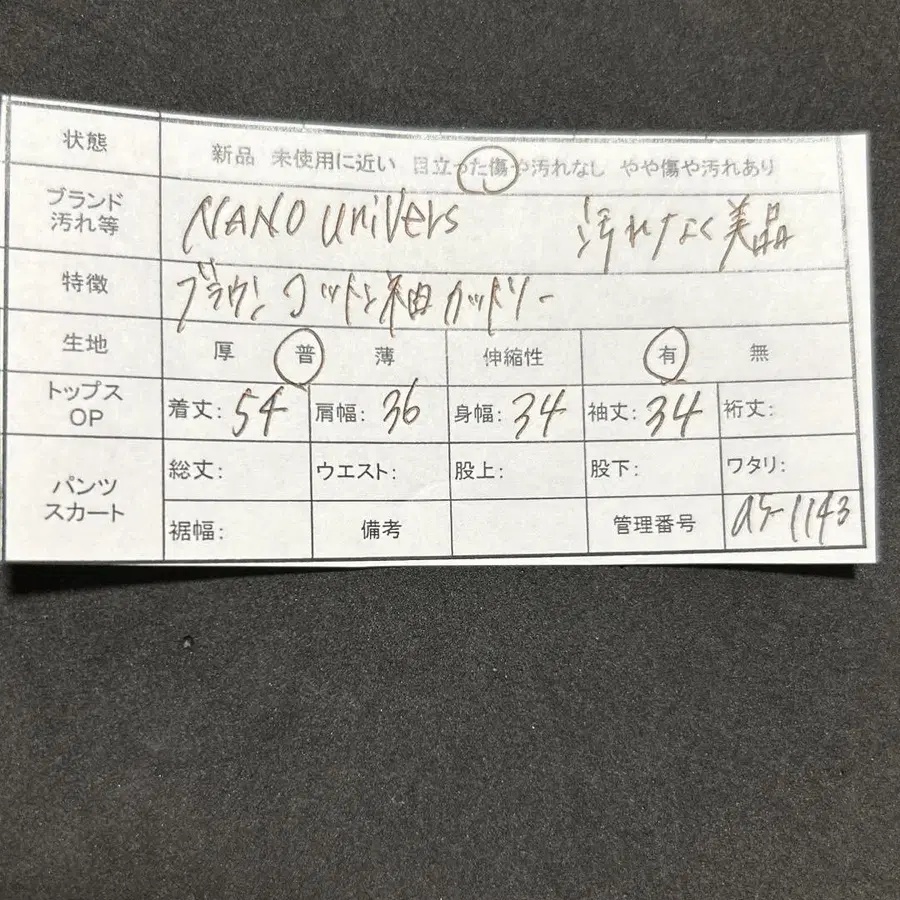 状態 新品 未使用に近い 目立った傷や汚れなし やや傷や汚れあり
ブランド 汚れ等 NANO univers 汚れなく美品
特徴 ブラウン コットン 袖 カットソー
生地 厚 普 薄 伸縮性 有 無
トップス OP 着丈: 54 肩幅: 36 身幅: 34 袖丈: 34 裄丈:
パンツ スカート 総丈: ウエスト: 股上: 股下: ワタリ:
裾幅: 備考 管理番号 1143